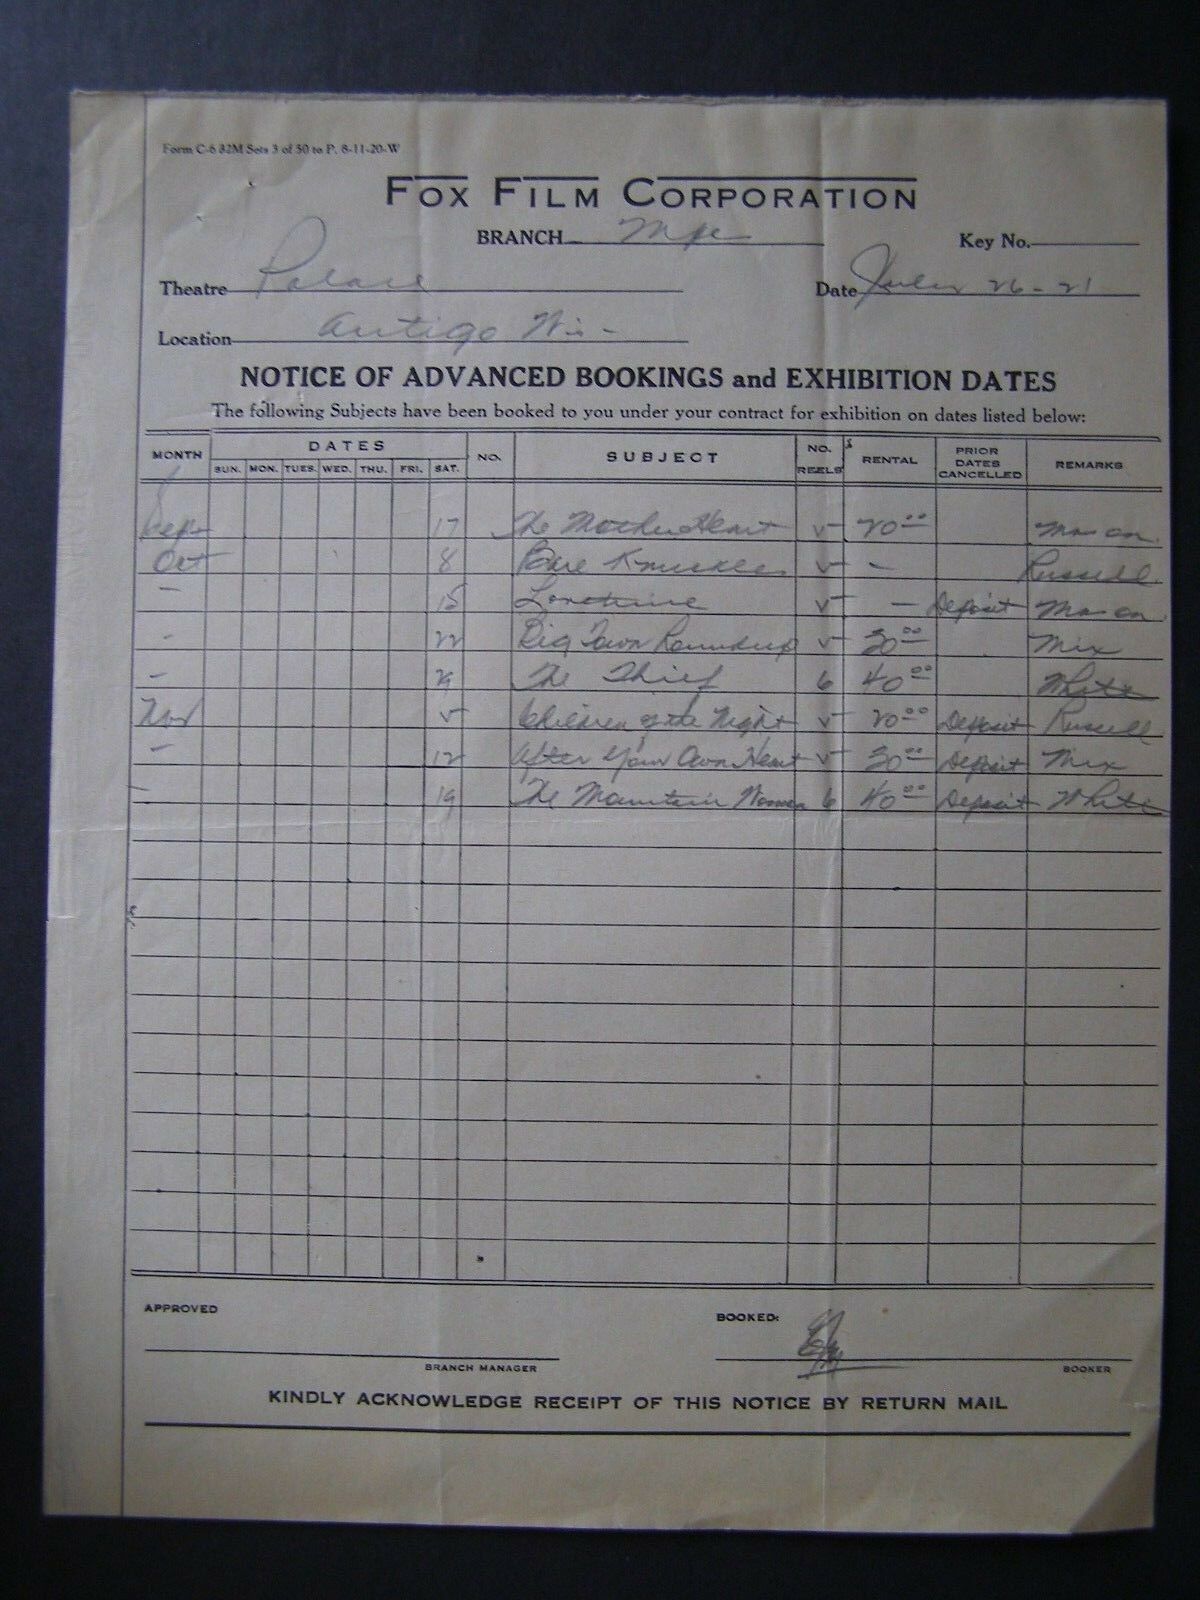 Form C-6 32M Sets 3 of 50 to P. 8-11-20-W
FOX FILM CORPORATION
BRANCH
Key No.
Theatre Palace
Date July 26-21
Location Antigo Wis-
NOTICE OF ADVANCED BOOKINGS and EXHIBITION DATES
The following Subjects have been booked to you under your contract for exhibition on dates listed below:
MONTH DATES NO. SUBJECT NO. REELS $ RENTAL PRIOR DATES CANCELLED REMARKS
SUN. MON. TUES. WED. THU. FRI. SAT.
Sept 17 The Mother Heart 5 20 00 Mason
Oct 8 Bare Knuckles 5 - Russell
- 15 5 - Deposit Mason
- 22 Big Town Roundup 5 30 00 Mix
- 29 The Thief 6 40 00 White
Nov 5 Children of the Night 5 20 00 Deposit Russell
- 12 After Your Own Heart 5 30 00 Deposit Mix
- 19 The Mountain Woman 6 40 00 Deposit White
APPROVED
BOOKED:
BRANCH MANAGER
BOOKER
KINDLY ACKNOWLEDGE RECEIPT OF THIS NOTICE BY RETURN MAIL